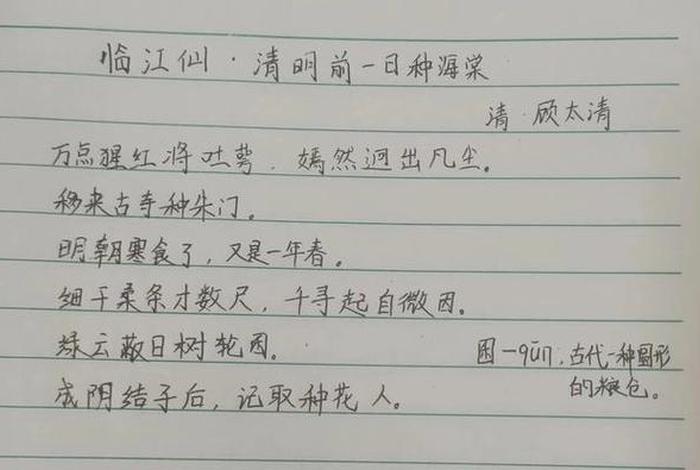 临江仙·清明前一日种海棠
清·顾太清
万点猩红将吐萼,嫣然迥出凡尘。
移来古寺种朱门。
明朝寒食了,又是一年春。
细干柔条才数尺,千寻起自微因。
绿云蔽日树轮囷。
囷—qūn,古代一种圆形
的粮仓。
成阴结子后,记取种花人。